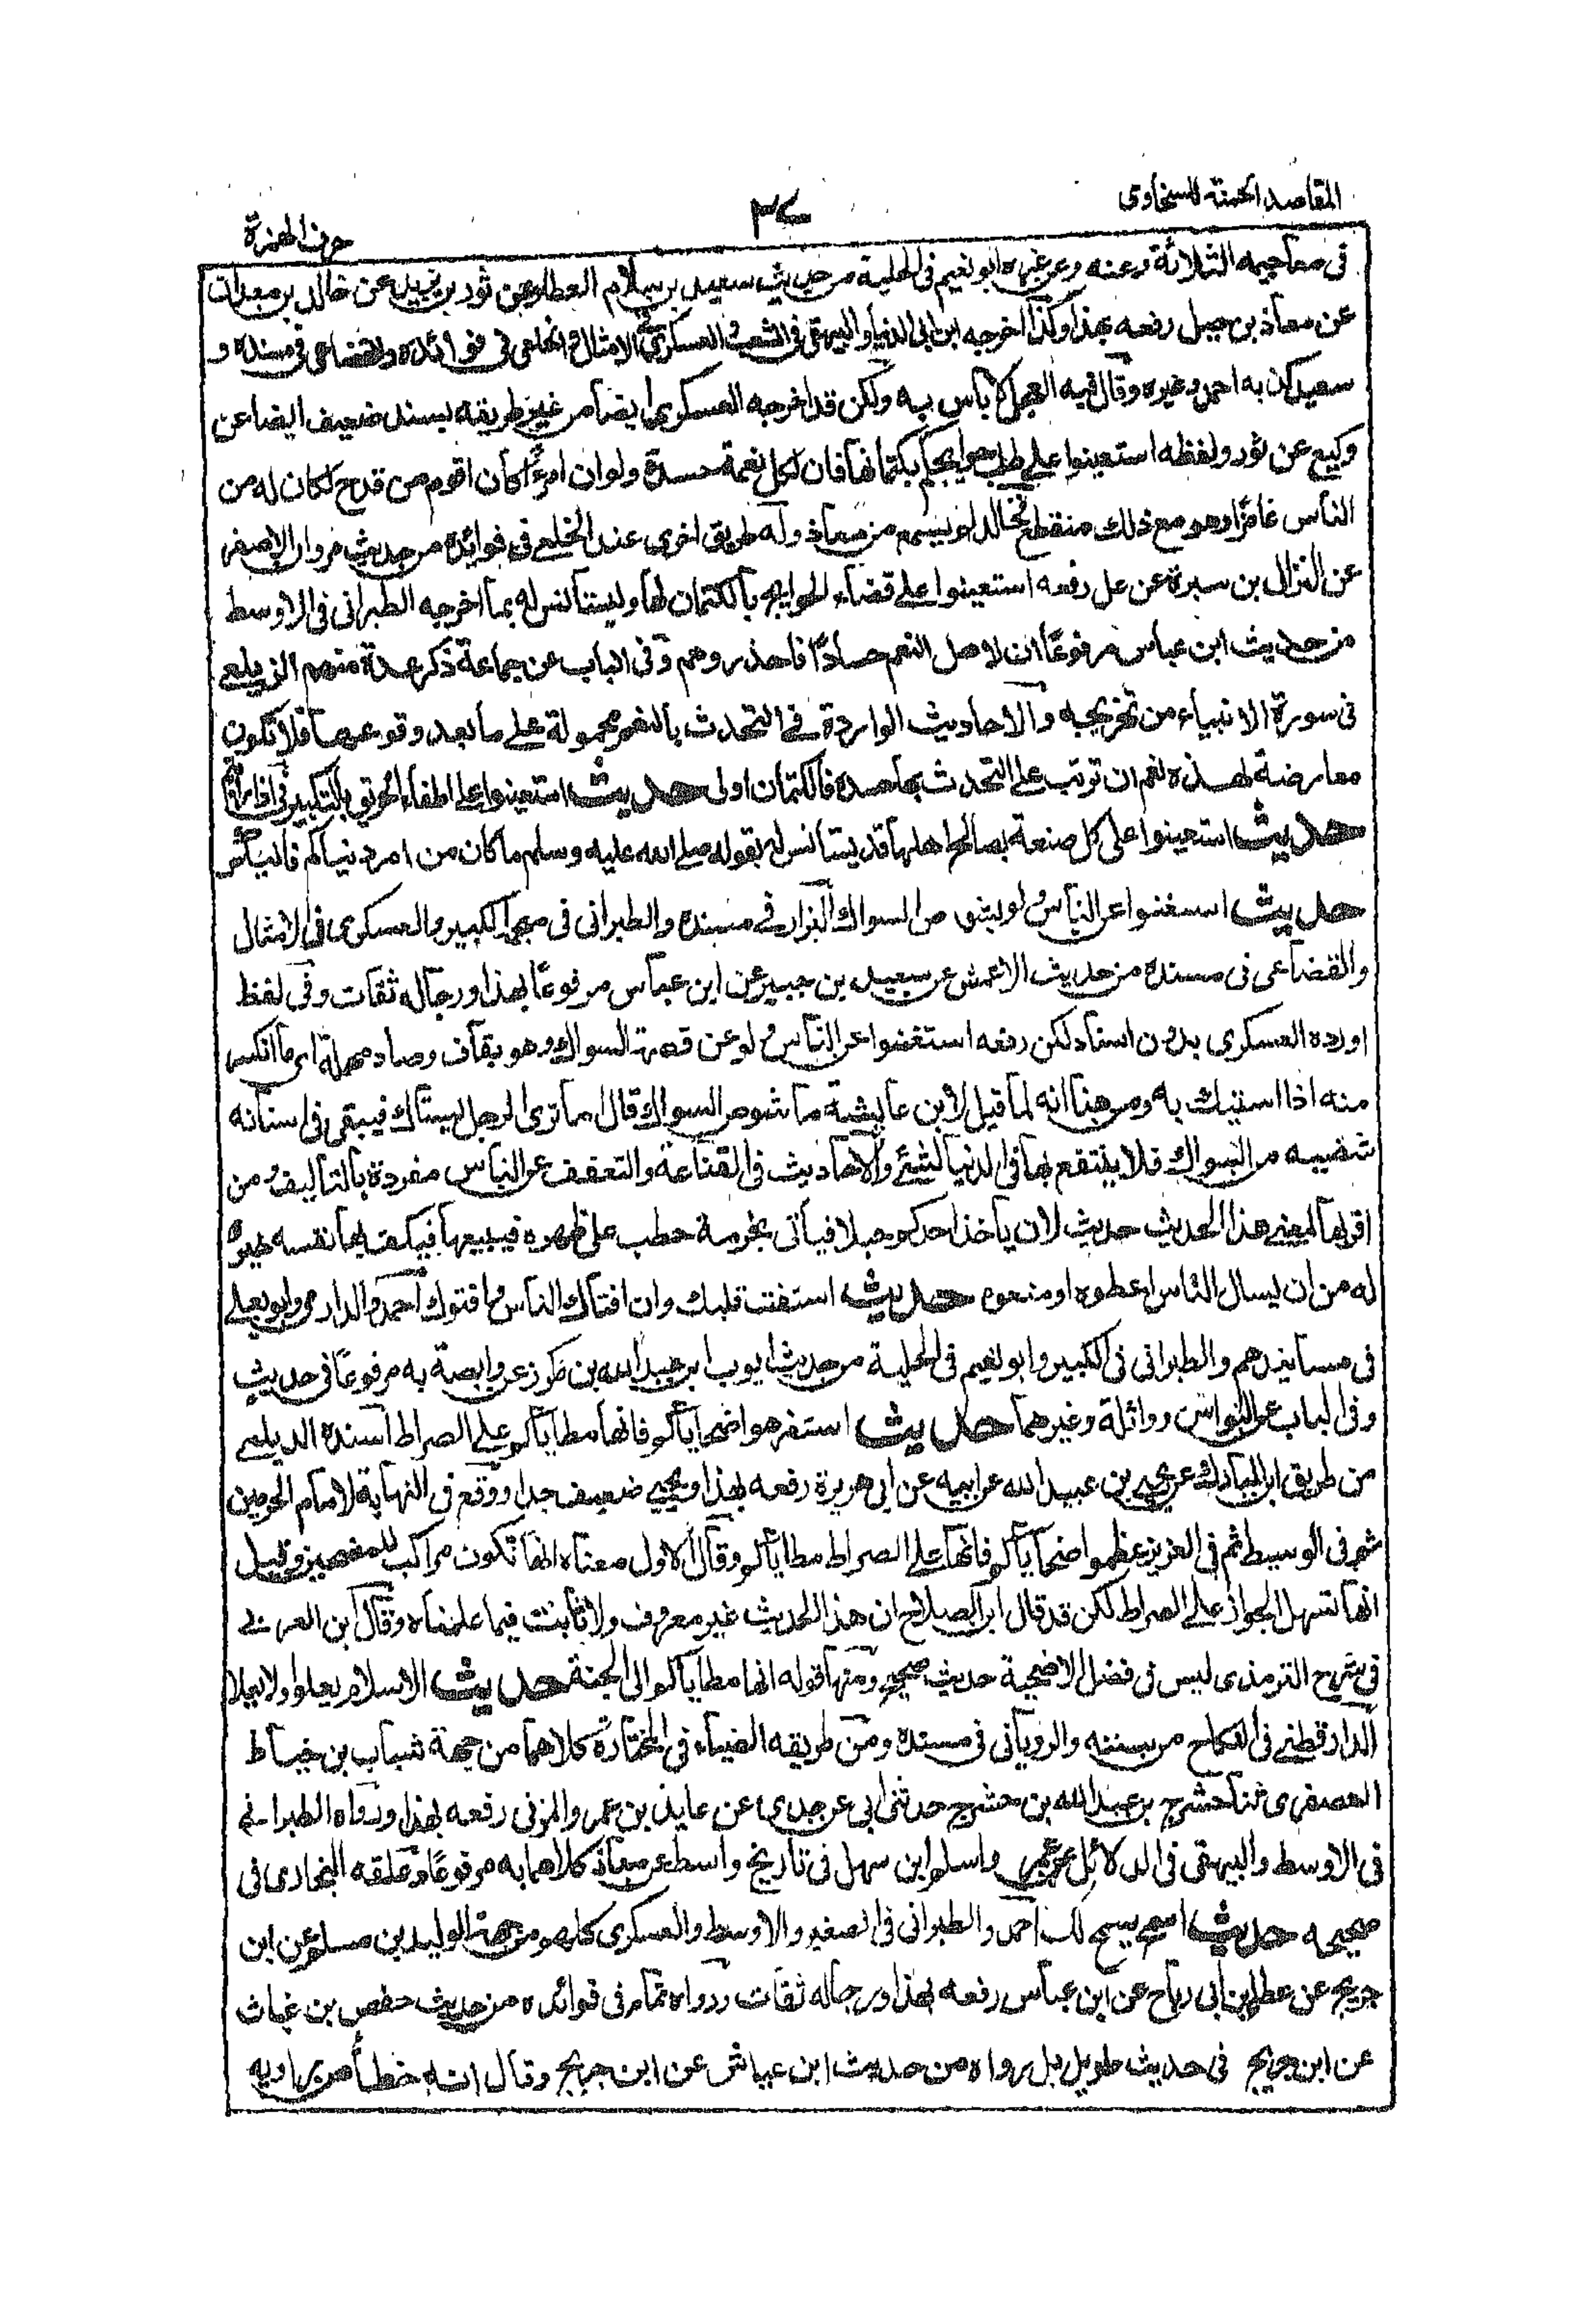 المقاصد الحسنة للسخاوى
حرف الهمزة
فى معاجيمه الثلاثة وعنه وعن غيره ابو نعيم فى الحلية من حديث سعيد بن سلام العطار عن ثور بن يزيد عن خالد بن معدان
عن معاذ بن جبل رفعه بهذا وكذا اخرجه ابن ابى الدنيا والبيهقى فى الشعب والعسكرى فى الامثال والخلعى فى فوائده والقضاعى فى مسنده و
سعيد كذبه احمد وغيره وقال فيه العجلى لا بأس به ولكن قد اخرجه العسكرى ايضا من غير طريقه بسند ضعيف ايضا عن
وكيع عن ثور ولفظه استعينوا على طلب حوايجكم بكتمانها فان لكل نعمة حسدة ولو ان امرءًا كان اقوم من قدح لكان له من
الناس غامزًا وهو مع ذلك منقطع فخالد لم يسمع من معاذ وله طريق اخرى عند الخلعى فى فوائده من حديث مروان الاصفر
عن النزال بن سبرة عن على رفعه استعينوا على قضاء الحوايج بالكتمان لها وليستأنس له بما اخرجه الطبرانى فى الاوسط
من حديث ابن عباس مرفوعًا ان لاهل النعم حسادًا فاحذروهم وفى الباب عن جماعة ذكر عدة منهم الزيلعى
فى سورة الانبياء من تخريجه والاحاديث الواردة فى التحدث بالنعم محمولة على ما بعد وقوعها فلا تكون
معارضة لهذه نعم ان ترتب على التحدث بها حسده فالكتمان اولى حديث استعينوا على اطفاء الحريق بالتكبير فى
حديث استعينوا على كل صنعة بصالح اهلها قد يستأنس له بقوله صلى الله عليه وسلم ما كان من امر دنياكم فاليكم
حديث استغنوا عن الناس ولو بشوص السواك البزار فى مسنده والطبرانى فى معجمه الكبير والعسكرى فى الامثال
والقضاعى فى مسنده من حديث الاعمش عن سعيد بن جبير عن ابن عباس مرفوعًا بهذا ورجاله ثقات وفى لفظ
اورده العسكرى بدون اسناد لكن رفعه استغنوا عن الناس ولو عن قصمة السواك وهو بقاف وصاد مهملة اى ما انكسر
منه اذا استيك به ومن هنا انه لما قيل لابن عايشة ما شوص السواك قال اما ترى الرجل يستاك فيبقى فى اسنانه
شظية من السواك فلا ينتفع بها فى الدنيا لشئ والاحاديث فى القناعة والتعفف عن الناس مفردة بالتأليف ومن
اقربها لمعنى هذا الحديث حديث لان يأخذ احدكم حبلا فيأتى بحزمة حطب على ظهره فيبيعها فيكف بها نفسه خير
له من ان يسال الناس اعطوه او منعوه حديث استفت قلبك وان افتاك الناس وافتوك احمد والدارمى وابو يعلى
فى مسانيدهم والطبرانى فى الكبير وابو نعيم فى الحلية من حديث ايوب بن عبد الله بن مكرز عن وابصة به مرفوعًا فى حديث
وفى الباب عن النواس وواثلة وغيرهما حديث استفرهوا ضحاياكم فانها مطاياكم على الصراط اسنده الديلمى
من طريق ابن المبارك عن يحيى بن عبيد الله عن ابيه عن ابى هريرة رفعه بهذا ويحيى ضعيف جدا ووقع فى النهاية لامام الحرمين
ثم فى الوسيط ثم فى العزيز عظموا ضحاياكم فانها على الصراط مطاياكم وقال الاول معناه انها تكون مراكب للمضحين وقيل
انها تسهل الجواز على الصراط لكن قد قال ابن الصلاح ان هذا الحديث غير معروف ولا ثابت فيما علمناه وقال ابن العربى
فى شرح الترمذى ليس فى فضل الاضحية حديث صحيح ومنها قوله انها مطاياكم الى الجنة حديث الاسلام يعلو ولا يعلا
الدارقطنى فى النكاح من سننه والرويانى فى مسنده ومن طريقه الضياء فى المختارة كلاهما من جهة شباب بن خياط
العصفرى ثنا حشرج بن عبد الله بن حشرج حدثنى ابى عن جدى عن عايذ بن عمرو المزنى رفعه بهذا ورواه الطبرانى
فى الاوسط والبيهقى فى الدلائل عن عمر واسلم ابن سهل فى تاريخ واسط عن معاذ كلاهما به مرفوعًا وعلقه البخارى فى
صحيحه حديث اسمح يسمح لك احمد والطبرانى فى الصغير والاوسط والعسكرى كلهم من جهة الوليد بن مسلم عن ابن
جريج عن عطاء بن ابى رباح عن ابن عباس رفعه بهذا ورجاله ثقات ورواه تمام فى فوائده من حديث حفص بن غياث
عن ابن جريج فى حديث طويل بل رواه من حديث ابن عياش عن ابن جريج وقال انه خطأ من راويه